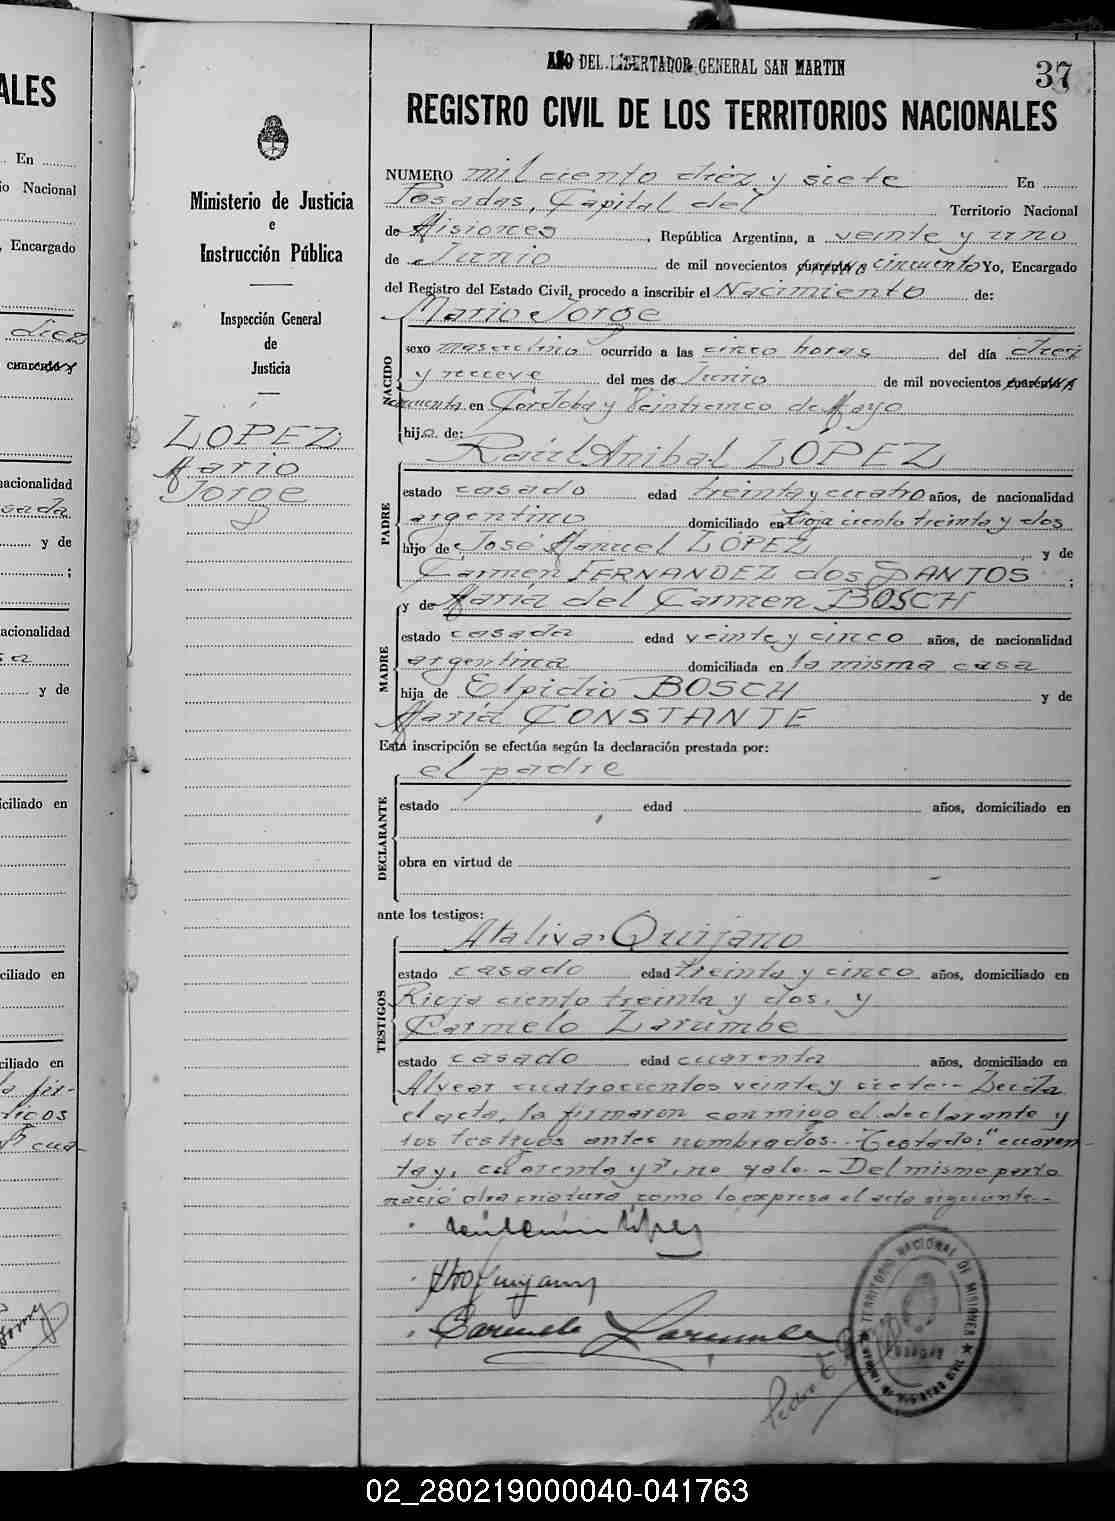 AÑO DEL LIBERTADOR GENERAL SAN MARTIN
37
REGISTRO CIVIL DE LOS TERRITORIOS NACIONALES
Ministerio de Justicia
e
Instrucción Pública
Inspección General
de
Justicia
LOPEZ
Mario
Jorge
NUMERO mil ciento diez y siete En
Posadas, Capital del Territorio Nacional
de Misiones, República Argentina, a veinte y uno
de Junio de mil novecientos cuarenta cincuenta Yo, Encargado
del Registro del Estado Civil, procedo a inscribir el Nacimiento de:
Mario Jorge
NACIDO
sexo masculino ocurrido a las cinco horas del día diez
y nueve del mes de Junio de mil novecientos cuarenta
cincuenta en Córdoba y Veinticinco de Mayo
hijo de:
Raúl Anibal LOPEZ
PADRE
estado casado edad treinta y cuatro años, de nacionalidad
argentino domiciliado en Rioja ciento treinta y dos
hijo de José Manuel LOPEZ y de
Carmen FERNANDEZ dos SANTOS ;
y de María del Carmen BOSCH
MADRE
estado casada edad veinte y cinco años, de nacionalidad
argentina domiciliada en la misma casa
hija de Elpidio BOSCH y de
María CONSTANTE
Esta inscripción se efectúa según la declaración prestada por:
el padre
DECLARANTE
estado edad años, domiciliado en
obra en virtud de
ante los testigos:
Ataliva Quijano
TESTIGOS
estado casado edad treinta y cinco años, domiciliado en
Rioja ciento treinta y dos. y
Carmelo Zarumbe
estado casado edad cuarenta años, domiciliado en
Alvear cuatrocientos veinte y siete.- Leída
el acta, la firmaron conmigo el declarante y
los testigos antes nombrados.- Testado: "cuaren-
ta y, cuarenta y", no vale.- Del mismo parto
nació otra criatura como lo expresa el acta siguiente.-
TERRITORIO NACIONAL DE MISIONES
POSADAS
ALES
En
io Nacional
, Encargado
diez
nacionalidad
sada
y de
;
acionalidad
sa
y de
iciliado en
ciliado en
ciliado en
02_280219000040-041763